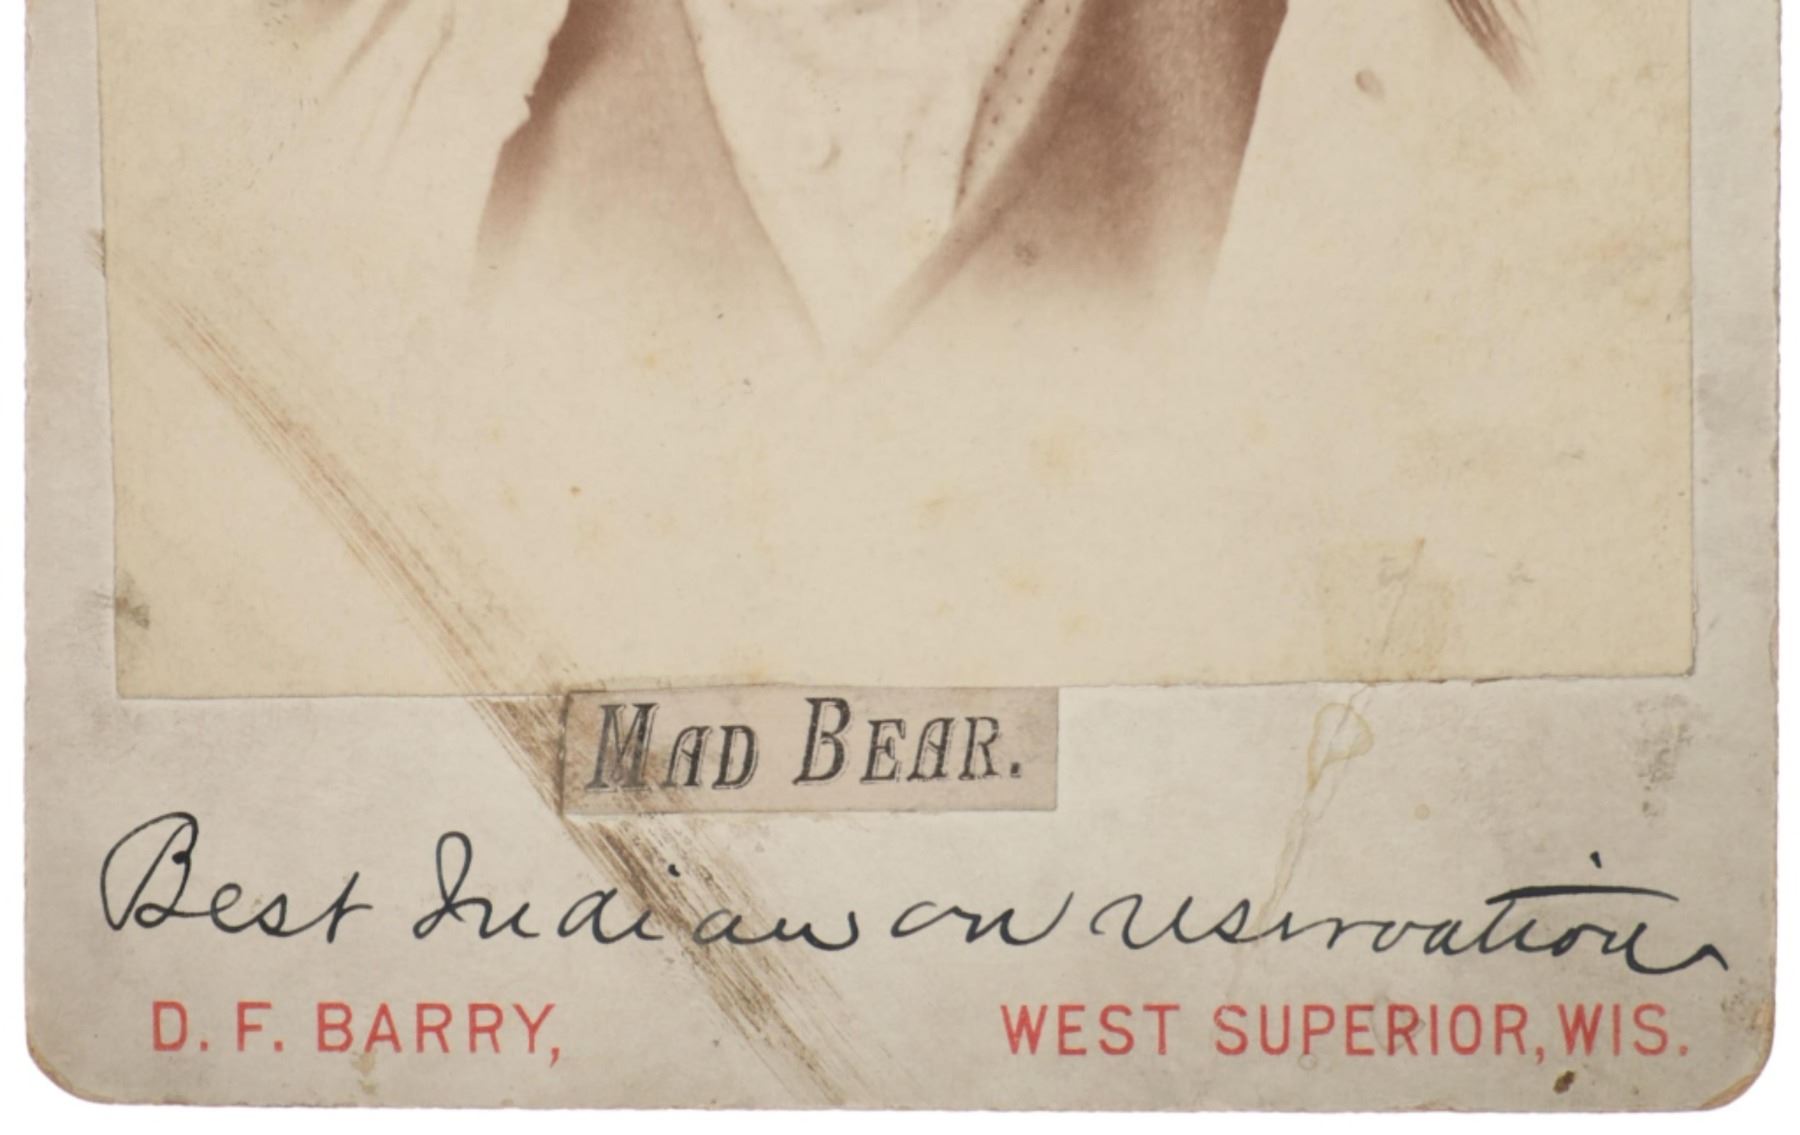 MAD BEAR.
Best Indian on reservation
D. F. BARRY, WEST SUPERIOR, WIS.